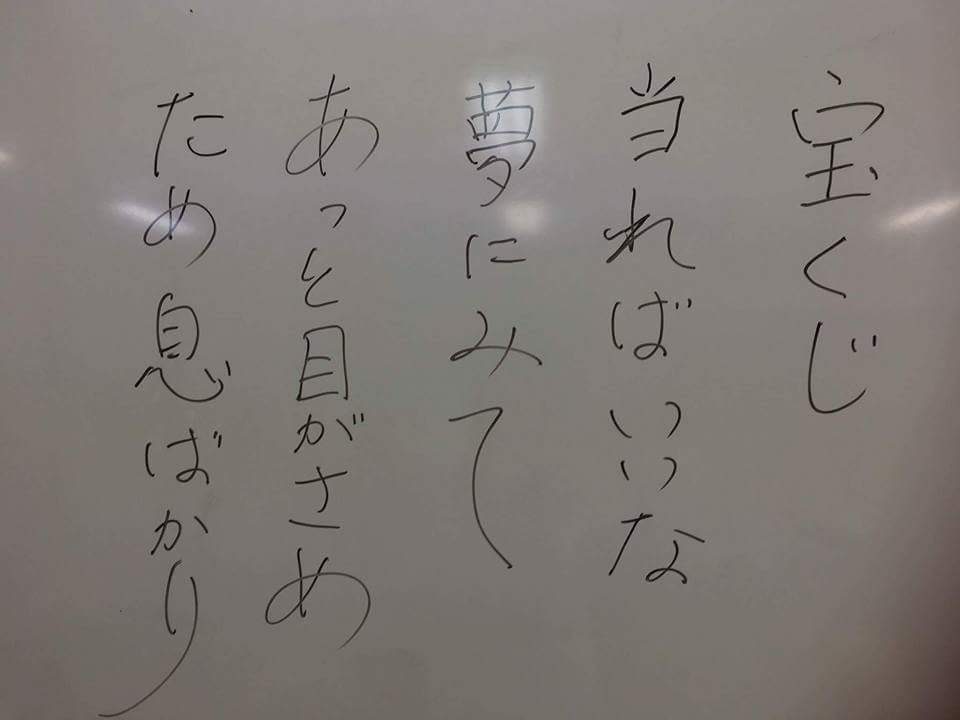 宝くじ
当ればいいな
夢にみて
あっと目がさめ
ため息ばかり